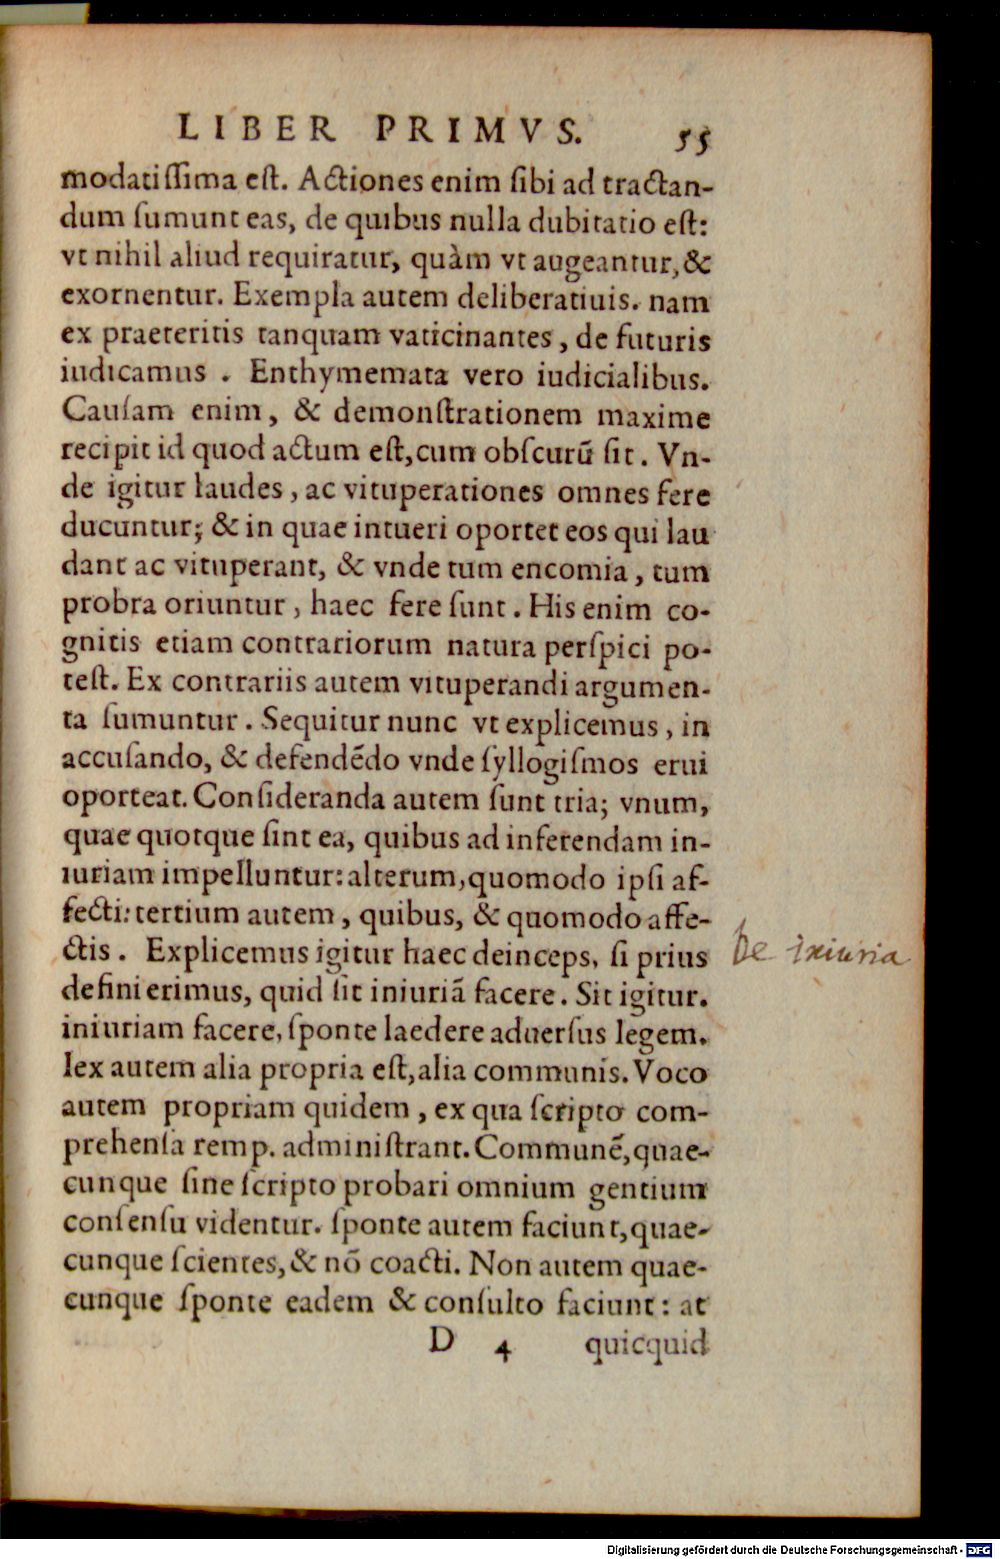 LIBER PRIMVS. 55
modatiſſima eſt. Actiones enim ſibi ad tractan-
dum ſumunt eas, de quibus nulla dubitatio eſt:
vt nihil aliud requiratur, quàm vt augeantur, &
exornentur. Exempla autem deliberatiuis. nam
ex praeteritis tanquam vaticinantes, de futuris
iudicamus. Enthymemata vero iudicialibus.
Cauſam enim, & demonſtrationem maxime
recipit id quod actum eſt, cum obſcurū ſit. Vn-
de igitur laudes, ac vituperationes omnes fere
ducuntur; & in quae intueri oportet eos qui lau
dant ac vituperant, & vnde tum encomia, tum
probra oriuntur, haec fere ſunt. His enim co-
gnitis etiam contrariorum natura perſpici po-
teſt. Ex contrariis autem vituperandi argumen-
ta ſumuntur. Sequitur nunc vt explicemus, in
accuſando, & defendēdo vnde ſyllogiſmos erui
oporteat. Conſideranda autem ſunt tria; vnum,
quae quotque ſint ea, quibus ad inferendam in-
iuriam impelluntur: alterum, quomodo ipſi af-
fecti: tertium autem, quibus, & quomodo affe-
ctis. Explicemus igitur haec deinceps, ſi prius
De iniuria
definierimus, quid ſit iniuriā facere. Sit igitur.
iniuriam facere, ſponte laedere aduerſus legem.
lex autem alia propria eſt, alia communis. Voco
autem propriam quidem, ex qua ſcripto com-
prehenſa remp. adminiſtrant. Communē, quae-
cunque ſine ſcripto probari omnium gentium
conſenſu videntur. ſponte autem faciunt, quae-
cunque ſcientes, & nō coacti. Non autem quae-
cunque ſponte eadem & conſulto faciunt: at
D 4 quicquid
Digitalisierung gefördert durch die Deutsche Forschungsgemeinschaft - DFG